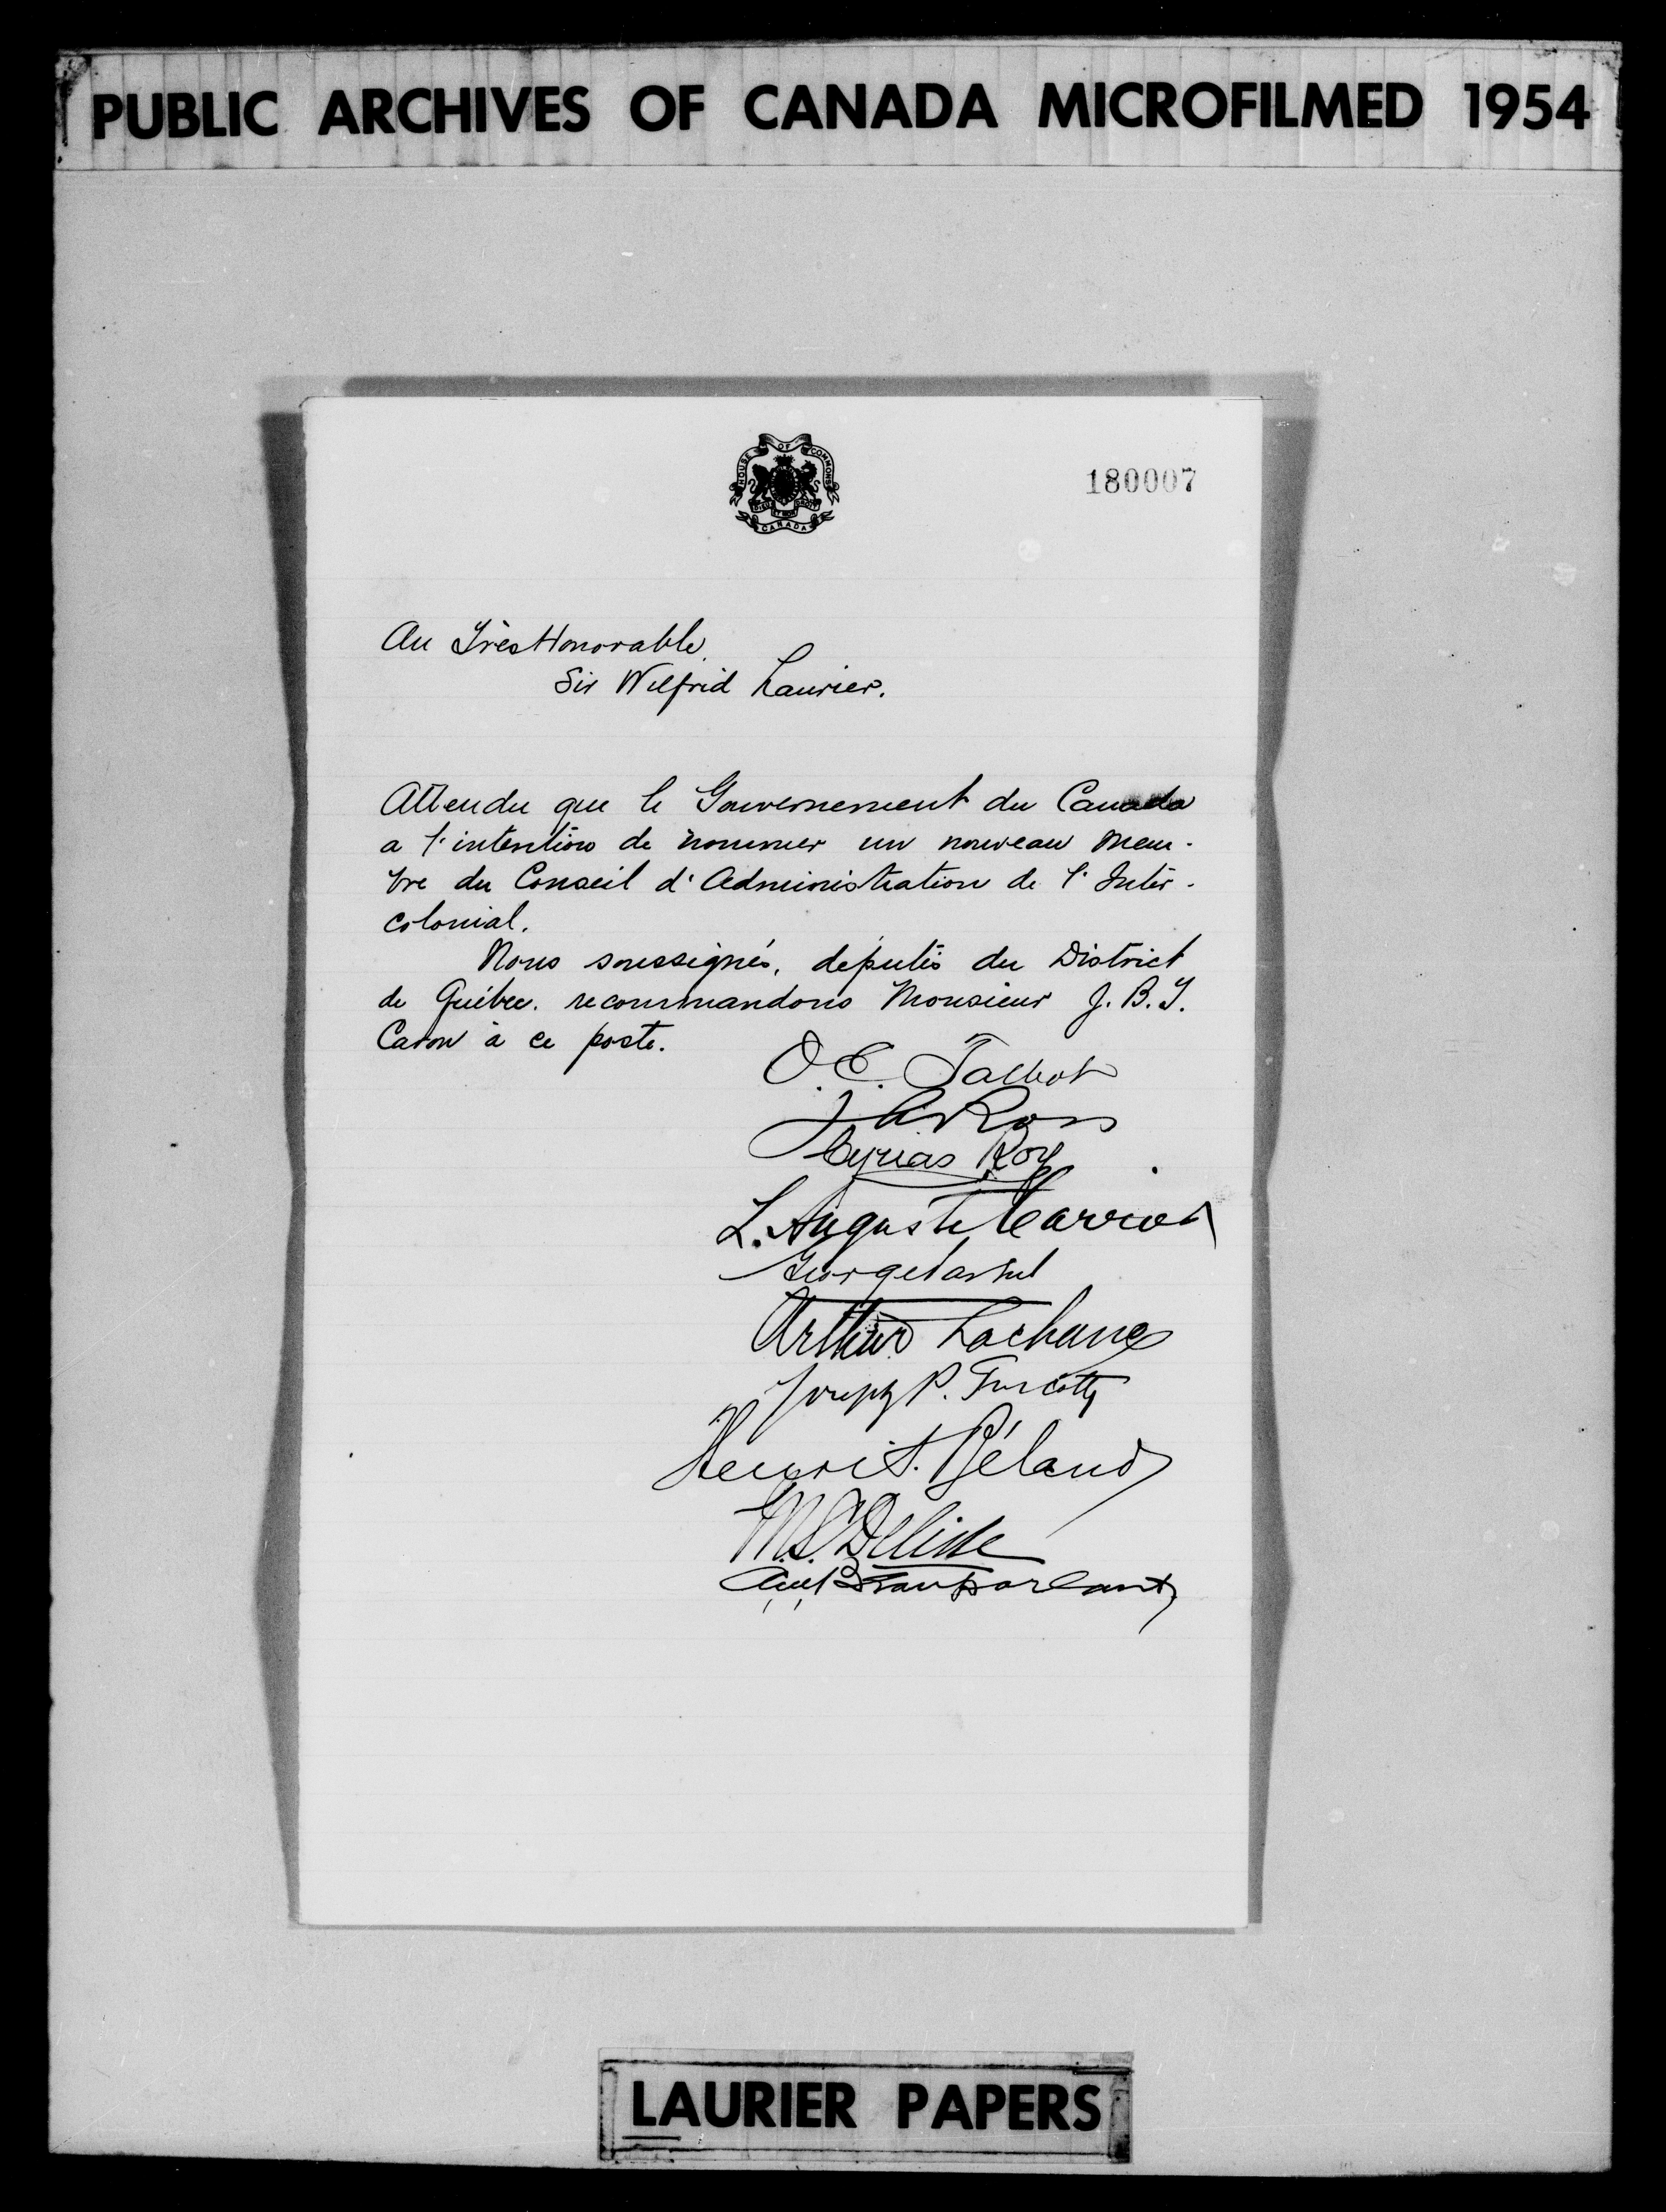 PUBLIC ARCHIVES OF CANADA MICROFILMED 1954
HOUSE OF COMMONS
DIEU ET MON DROIT
CANADA
180007
Au Très Honorable
Sir Wilfrid Laurier.
Attendu que le Gouvernement du Canada
a l'intention de nommer un nouveau mem-
bre du Conseil d'Administration de l'Inter-
colonial.
Nous soussignés, députés du District
de Québec. recommandons Monsieur J. B. T.
Caron à ce poste.
O. E. Talbot
J A Ross
Cyrias Roy
L. Auguste Carrier
George Parent
Arthur Lachance
Joseph P. Turcotte
Henri S. Béland
M. S. Delisle
LAURIER PAPERS